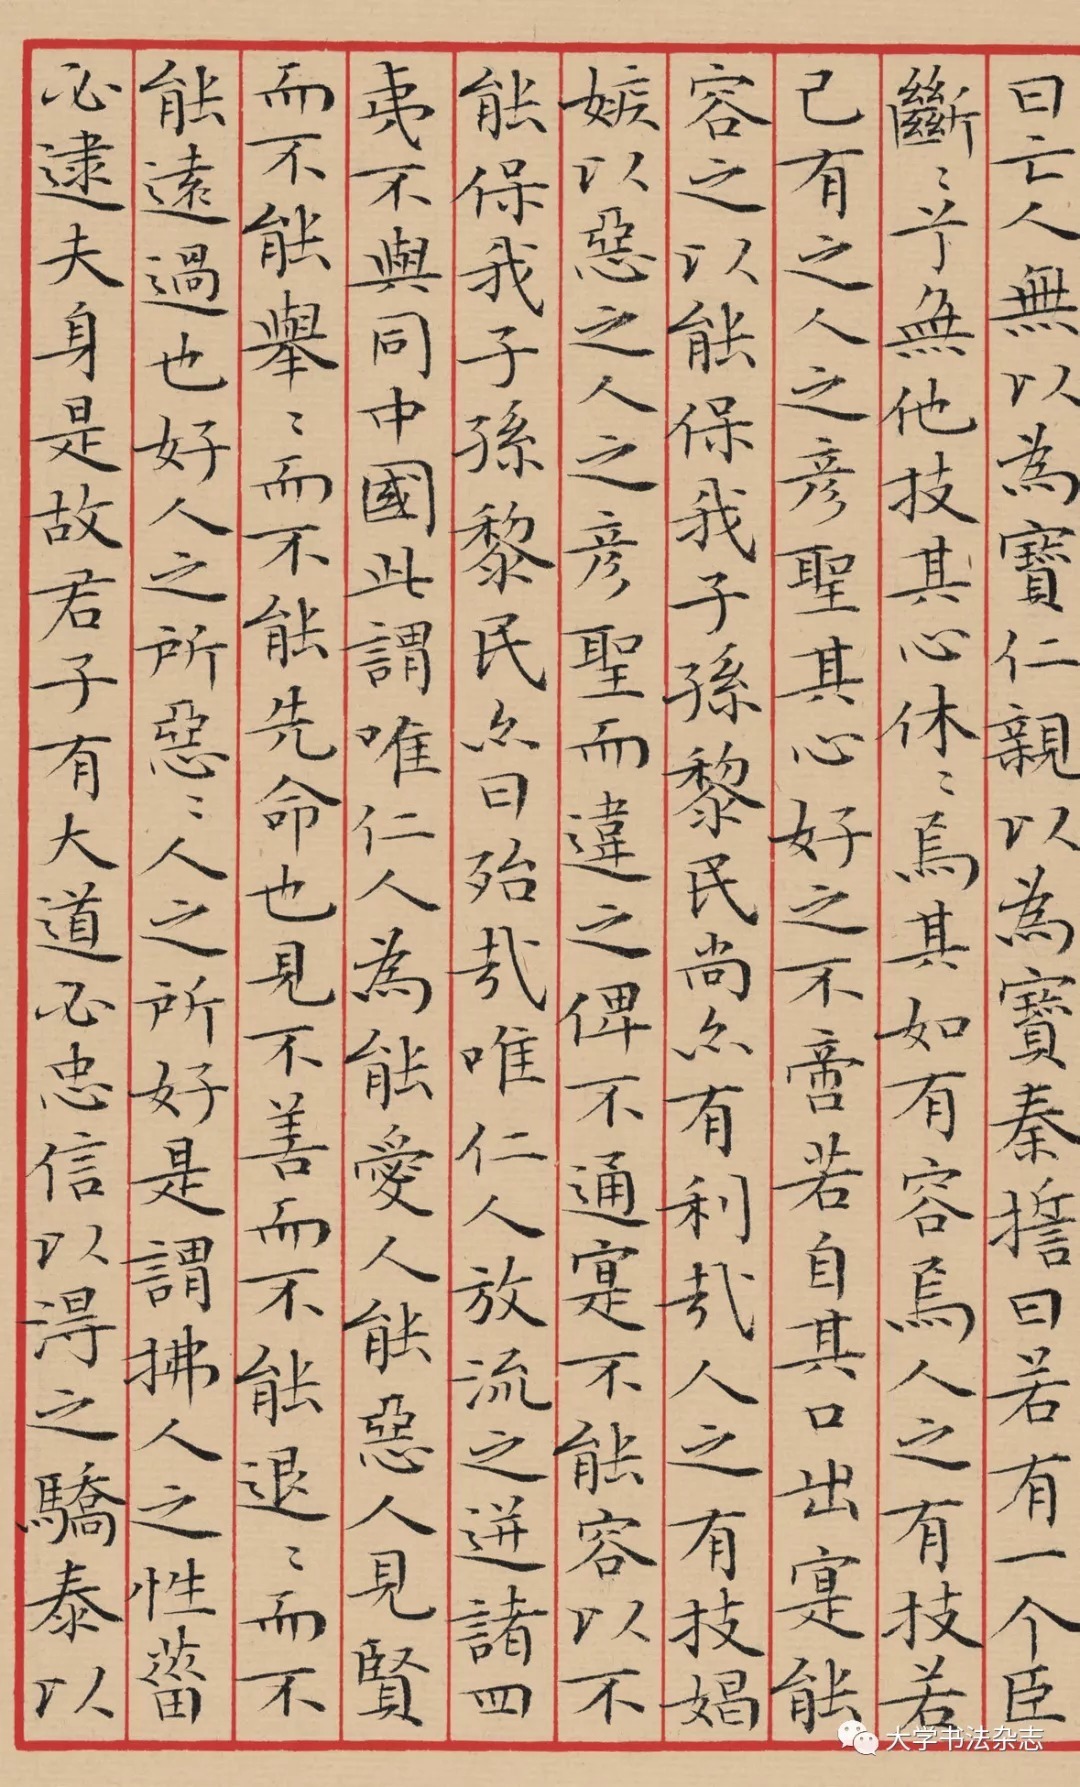 曰亡人無以為寶仁親以為寶秦誓曰若有一个臣
斷〻兮無他技其心休〻焉其如有容焉人之有技若
己有之人之彦聖其心好之不啻若自其口出寔能
容之以能保我子孫黎民尚尒有利哉人之有技媢
嫉以惡之人之彦聖而違之俾不通寔不能容以不
能保我子孫黎民尒曰殆哉唯仁人放流之迸諸四
夷不與同中國此謂唯仁人為能愛人能惡人見賢
而不能舉〻而不能先命也見不善而不能退〻而不
能遠過也好人之所惡〻人之所好是謂拂人之性菑
必逮夫身是故君子有大道必忠信以得之驕泰以
大学书法杂志